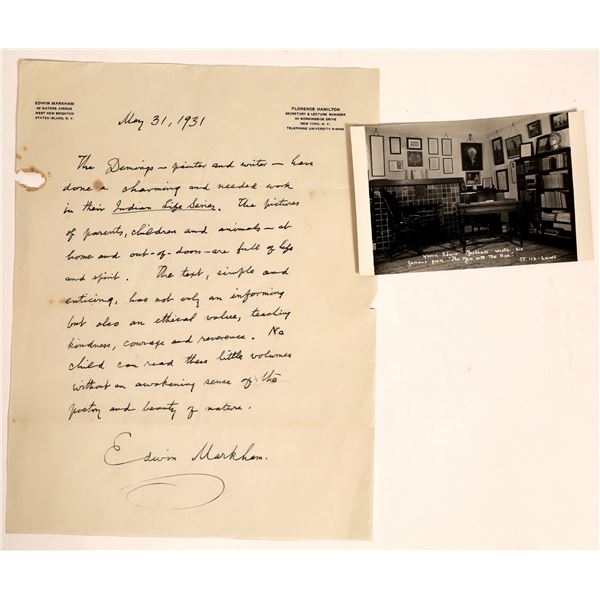 EDWIN MARKHAM
92 WATERS AVENUE
WEST NEW BRIGHTON
STATEN ISLAND, N. Y.
FLORENCE HAMILTON
SECRETARY & LECTURE MANAGER
44 MORNINGSIDE DRIVE
NEW YORK, N. Y.
TELEPHONE UNIVERSITY
May 31, 1931
The Demings – painter and writer – have
done a charming and needed work
in their Indian Life Series. The pictures
of parents, children and animals – at
home and out-of-doors – are full of life
and spirit. The text, simple and
enticing, has not only an informing
but also an ethical value, teaching
kindness, courage and reverence. No
child can read these little volumes
without an awakening sense of the
poetry and beauty of nature.
Edwin Markham.
Where Edwin Markham wrote his
famous poem "The Man With The Hoe"
SJ 112-Laws